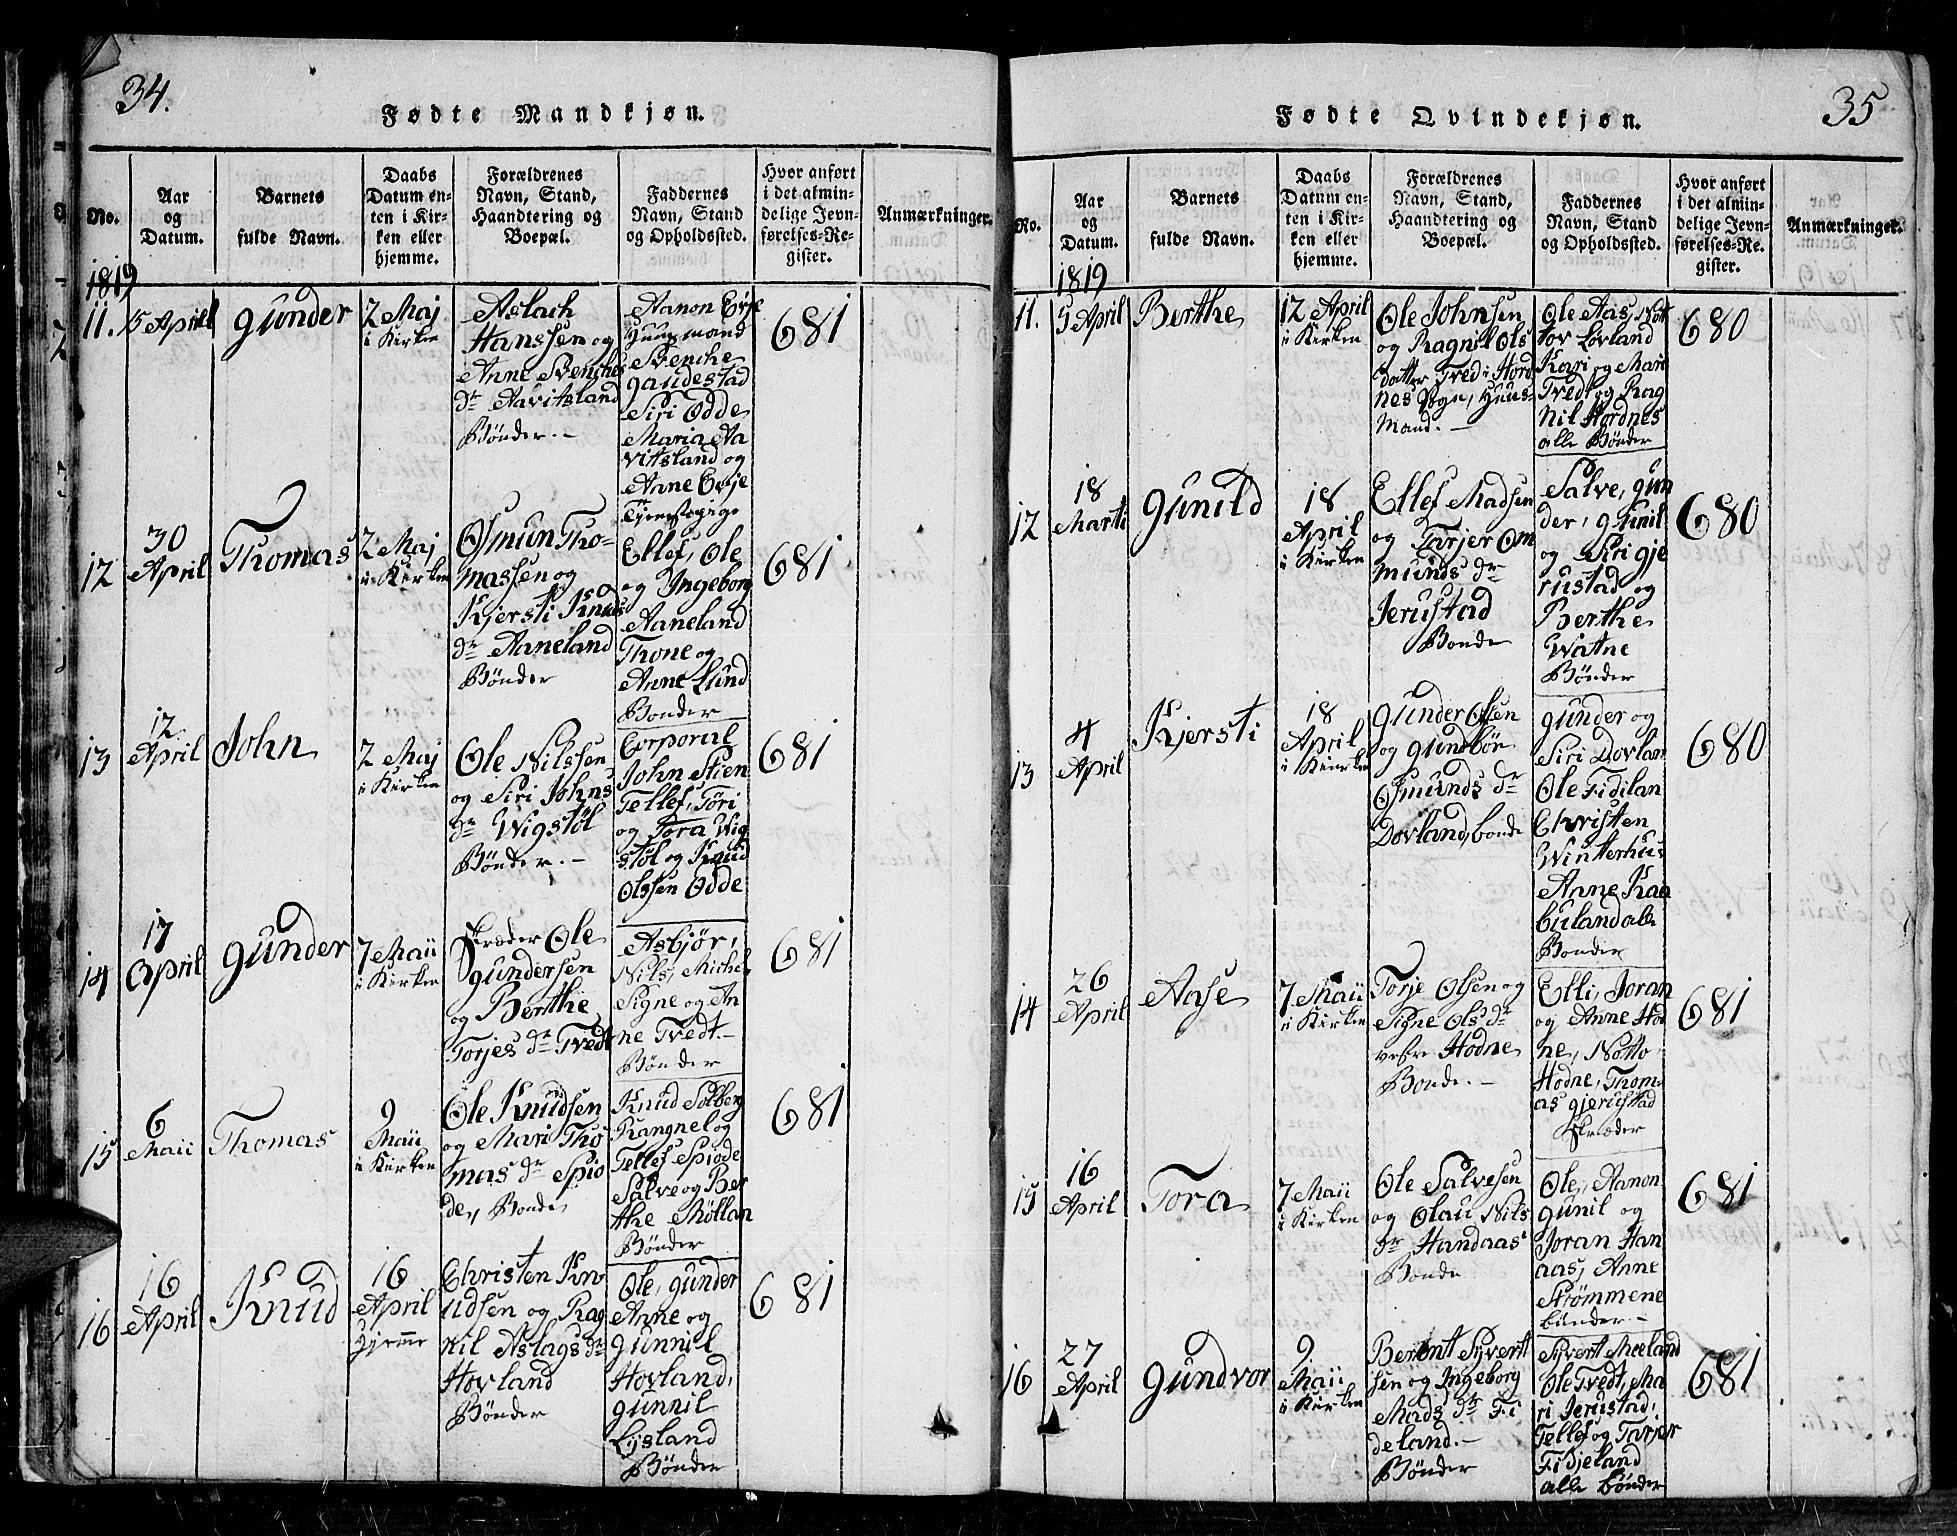 34.
Fødte Mandkjøn.
No.
Aar
og
Datum.
Barnets
fulde Navn.
Daabs
Datum en-
ten i Kir-
ken eller
hjemme.
Forældrenes
Navn, Stand,
Haandtering og
Boepæl.
Faddernes
Navn, Stand
og Opholdssted.
Hvor anført
i det almin-
delige Jevn-
førelses-Re-
gister.
Anmærkninger.
1819
11.
15 April
Gunder
2 Maj
i Kirken
Aslach
Hanssen og
Anne Svenches
dr Aavitsland
Bønder.-
Aanon Evje
Huusmand
Svenche
Gaudestad
Siri Odde
Maria Aa
vitsland og
Anne Evje
Tjenestepige
681
12
30
April
Thomas
2 Maj
i Kirken
Osmun Tho-
massen og
Kjersti Knuds
dr Aaneland
Bønder
Ellef, Ole
og Ingeborg
Aaneland
Thone og
Anne Lund
Bønder
681
13
12
April
John
2 Maj
i Kirken
Ole Nilssen
og Siri Johns
dr Wigstøl
Bønder.-
Corporal
John Stien
Tellef, Tøri
og Tora Wig
støl og Knud
Olssen Odde
681
14
17
April
Gunder
7 Maii
i Kirken
Skræder Ole
Gundersen
og Berthe
Torjes dr Tvedt
Asbjør,
Nils, Michel
Signe og An
ne Tvedt.-
Bønder
681
15
6
Maii
Thomas
9
Maii
i Kirken
Ole Knudsen
og Mari Tho
mas dr Spio
de, Bonde
Knud Solberg
Rangnel og
Tellef Spiode
Salve og Ber
the Møllan
Bønder
681
16
16
April
Knud
16
April
Hjemme
Christen Kn
udsen og Rag
nil Aslags dr
Hovland
Bønder
Ole, Gunder
Anne og
Gunnil
Hovland,
Gunnil
Lysland
Bønder
681
35
Fødte Qvindekjøn.
No.
Aar
og
Datum.
Barnets
fulde Navn.
Daabs
Datum en-
ten i Kir-
ken eller
hjemme.
Forældrenes
Navn, Stand,
Haandtering og
Boepæl.
Faddernes
Navn, Stand
og Opholdssted.
Hvor anført
i det almin-
delige Jevn-
førelses-Re-
gister.
Anmærkninger.
1819
11.
5 April
Berthe
12 April
i Kirken
Ole Johnsen
og Ragnil Ols
datter Tved i Hord
nes Sogn, Huus-
Mand.-
Ole Aas, Nott
tov Løvland
Kari og Mari
Tvedt og Rag
nil Hordnes
alle Bønder
680
12
18
Marti
Gunild
18
April
i Kirken
Ellef Madsen
og Tarjer Om
munds dr
Jerustad
Bonde
Salve, Gun
der, Gunil
og Siri Gje
rustad og
Berthe
Watne
Bønder
680
13
4
April
Kjersti
18
April
i Kirken
Gunder Olsen
og Gundbør
Osmunds dr
Dovland, bonde
Gunder og
Siri Dovlan
Ole Fidilan
Christen
Winterhus
Anne Kaa
Bønder
680
14
26
April
Aase
7 Maii
i Kirken
Torje Olsen og
Signe Ols dr
vestre Hodne
Bonde.-
Elli, Joran
og Anne Hod
ne, Notto
Hodne, Thom-
as Gjerustad
Skræder
681
15
16
April
Tora
7 Maii
i Kirken
Ole Salvesen
og Olau Nils
dr Handaas
Bonde
Ole, Aanon
Gunil og
Joran Han
aas, Anne
Strømmene
bønder.-
681
16
27
April
Gundvor
9
Maii
i Kirken
Berent Syvert
sen og Ingeborg
Mads dr Fi
deland.-
Bønder
Syvert Meeland
Ole Tvedt, Ma
ri Jerustad,
Tellef og Tarjer
Fidjeland
alle bønder
681